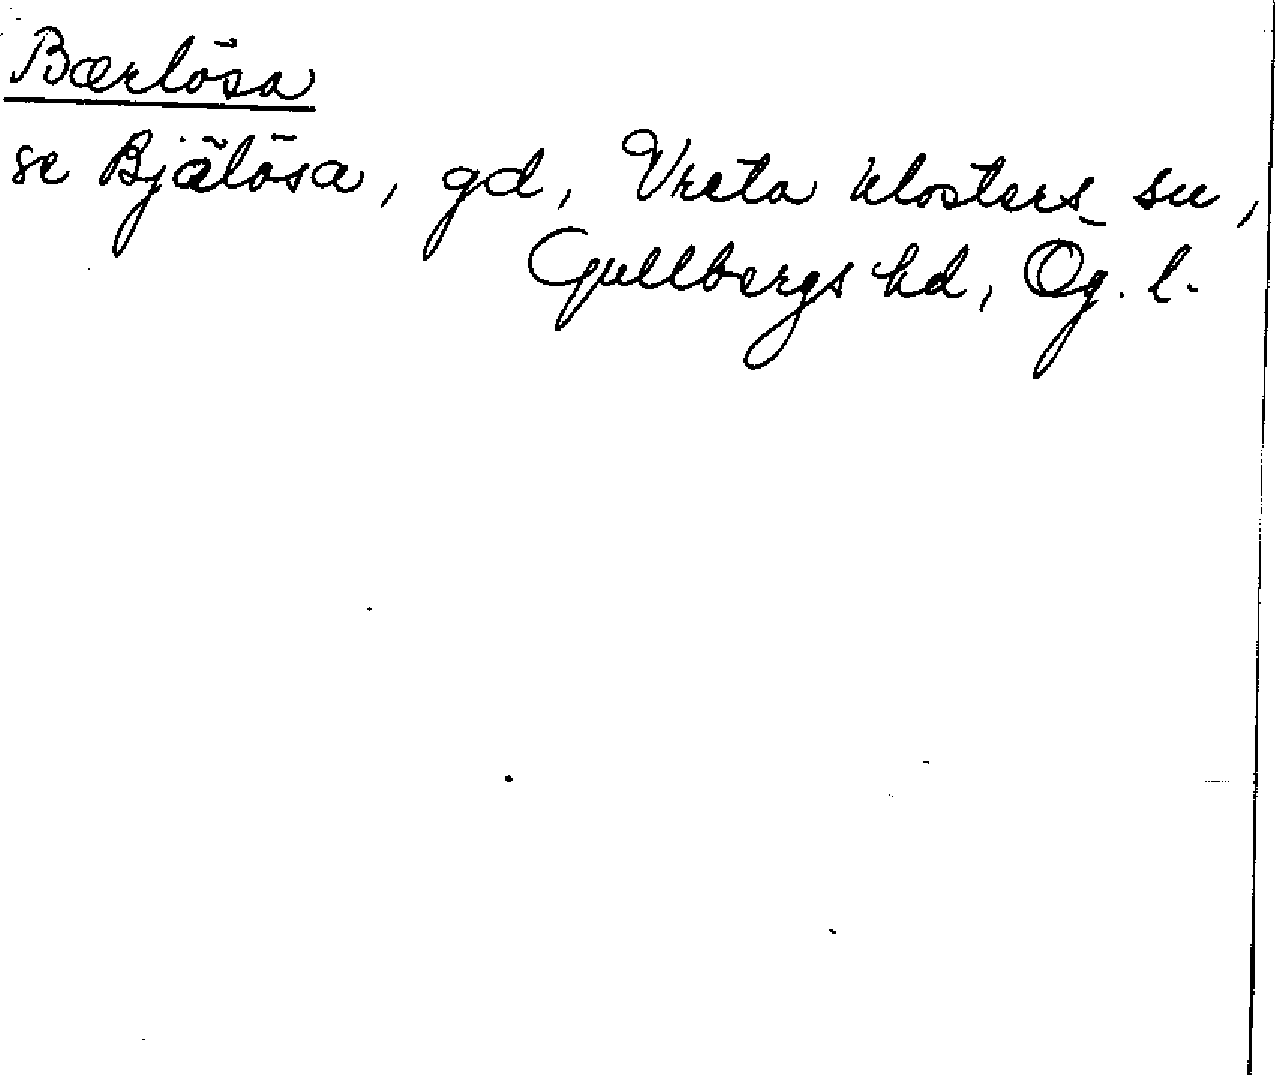 Bærlösa
se Bjälösa, gd, Vreta klosters sn,
Gullbergs hd, Ög. l.